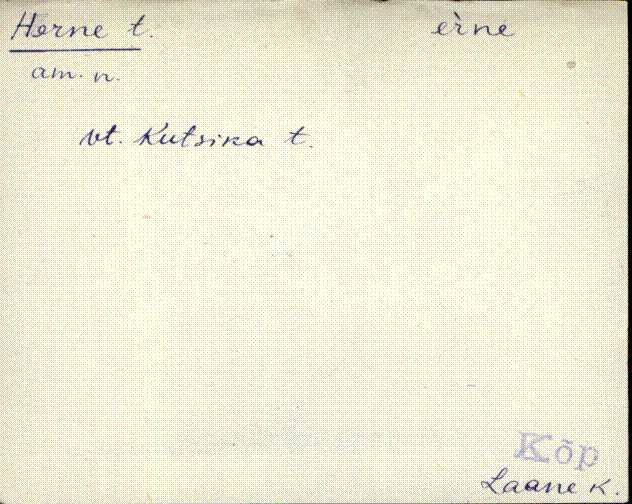 Herne t. eŕne
am. n.
vt. Kutsika t.
Kõp
Laane k.